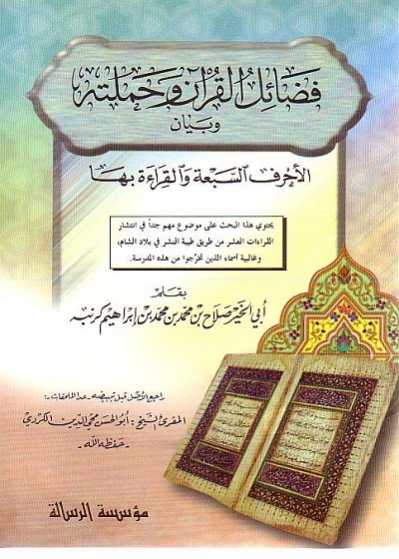 فضائل القرآن وحملته
وبيان
الأحرف السبعة والقراءة بها
يحتوي هذا البحث على موضوع مهم جداً في انتشار
القراءات العشر من طريق طيبة النشر في بلاد الشام،
وغالبية أسماء الذين تخرجوا من هذه المدرسة.
بقلم
أبي الخير صلاح بن محمد بن محمد بن إبراهيم كرنبه
راجع الأصل قبل تبييضه - عدا الملحقات -:
المقرئ الشيخ: أبو الحسن محي الدين الكردي
- حفظه الله -
مؤسسة الرسالة